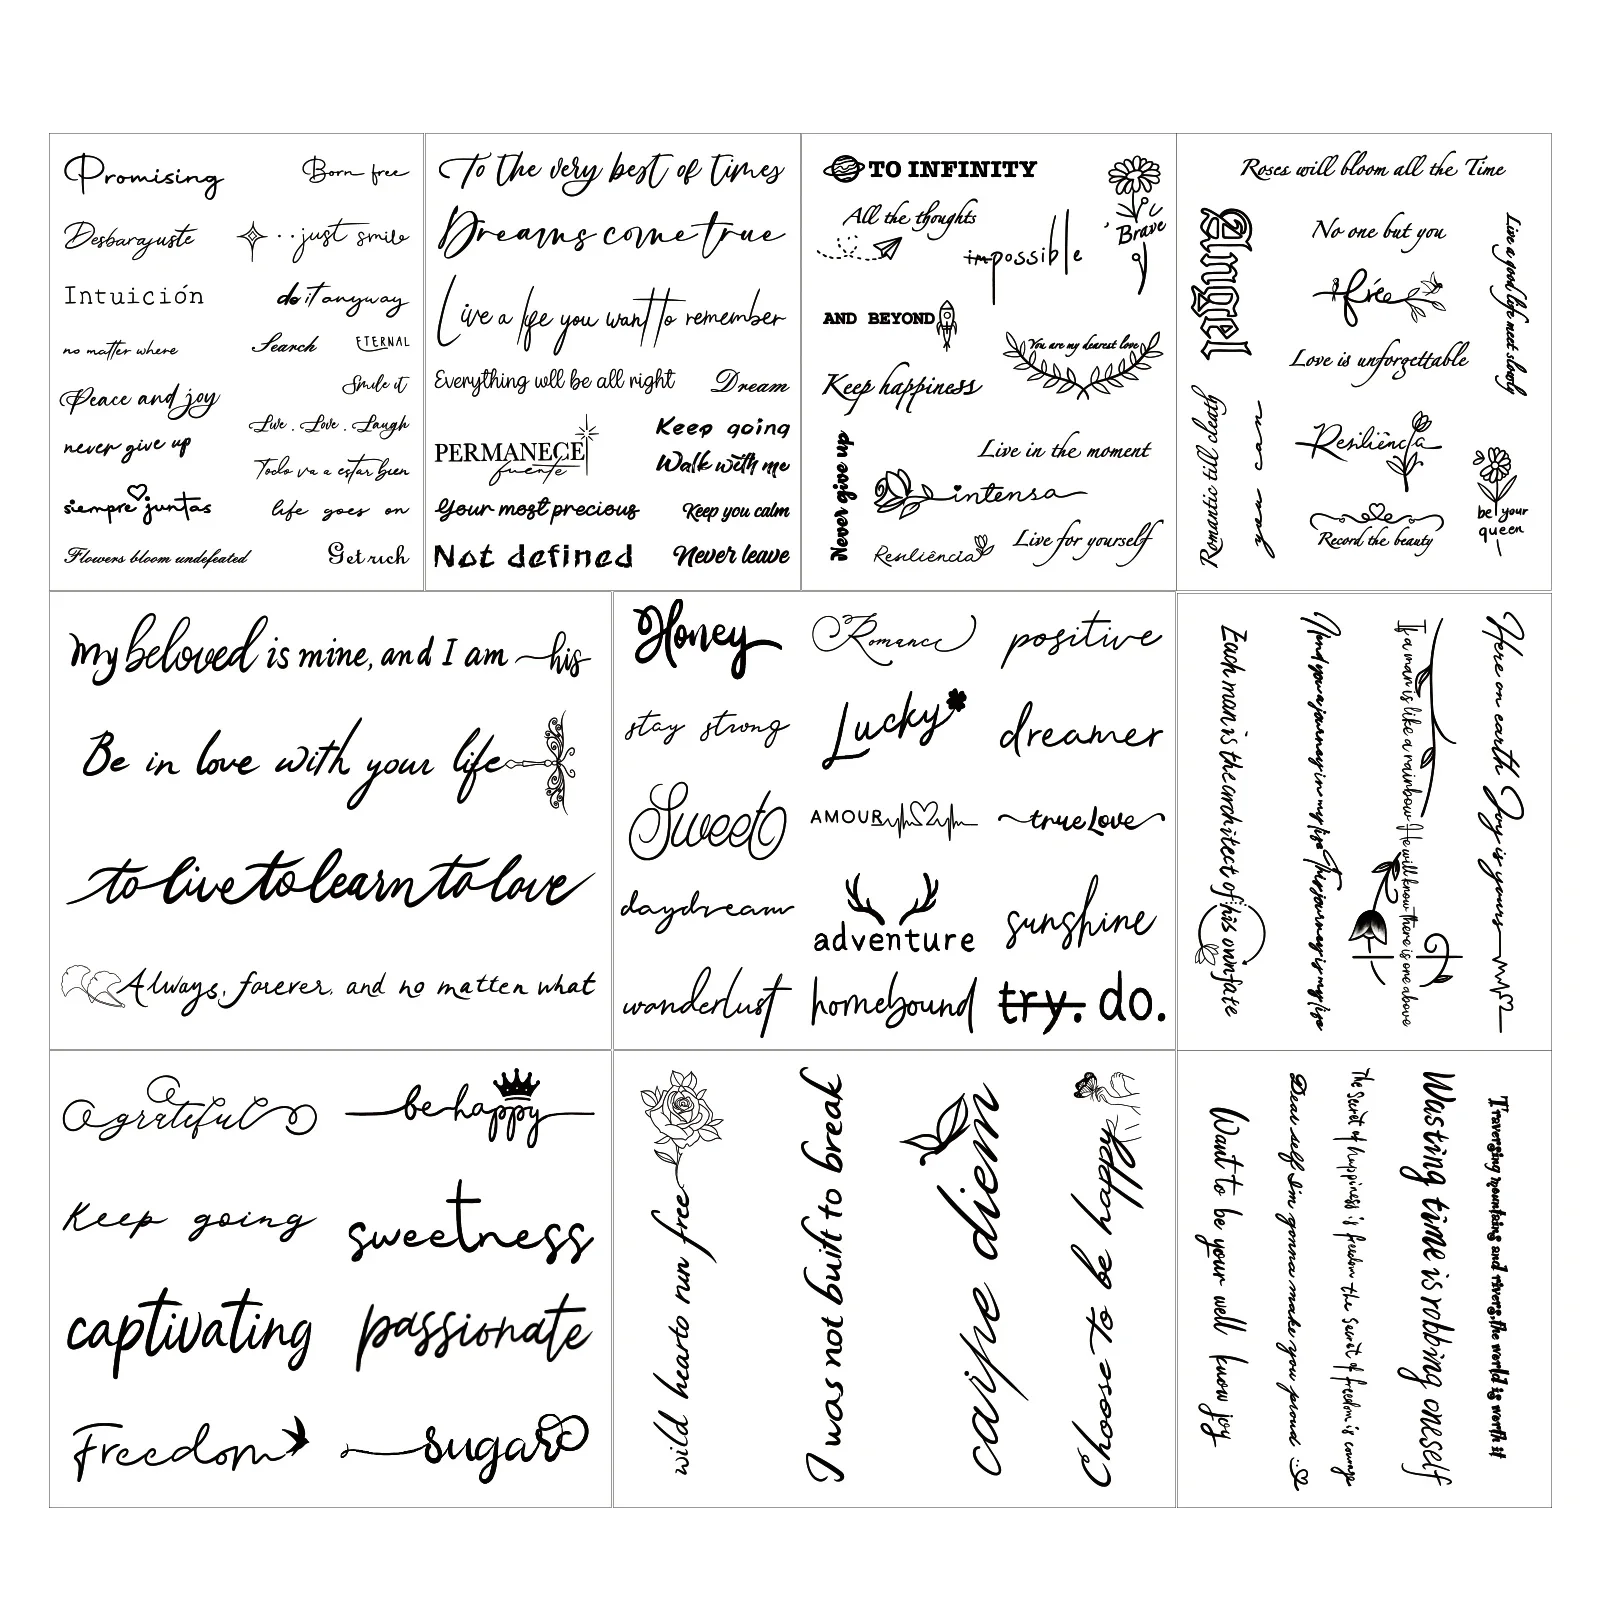 Promising
Born free
Desbarajuste
just smile
Intuición
do it anyway
no matter where
Search
ETERNAL
Smile it
Peace and joy
Live . Love . Laugh
never give up
Todo va a estar bien
siempre juntas
life goes on
Flowers bloom undefeated
Get rich
To the very best of times
Dreams come true
Live a life you want to remember
Everything will be all right
Dream
PERMANECE
fuerte
Keep going
Walk with me
Your most precious
Keep you calm
Not defined
Never leave
TO INFINITY
All the thoughts
impossible
Brave
AND BEYOND
You are my dearest love
Keep happiness
Never give up
Live in the moment
intensa
Live for yourself
Resiliência
Roses will bloom all the Time
Angel
No one but you
free
Live a good life meet slowly
Love is unforgettable
Romantic till death
you can
Resiliência
be your
queen
Record the beauty
My beloved is mine, and I am his
Be in love with your life
to live to learn to love
Always, forever, and no matten what
Honey
Romance
positive
stay strong
Lucky
dreamer
Sweet
AMOUR
true Love
daydream
adventure
sunshine
wanderlust
homebound
try. do.
Each man is the architect of his own fate
And you a journey in my life This journey is my life
If a man is like a rainbow He will know there is one above
Here on earth Joy is yours
grateful
be happy
Keep going
sweetness
captivating
passionate
Freedom
sugar
wild hearto run free
I was not built to break
carpe diem
Choose to be happy
Want to be your well know joy
Dear self I'm gonna make you proud
The Secret of happiness is freedom the Secret of freedom is courage
Wasting time is robbing oneself
Traversing mountains and rivers,the world is worth it